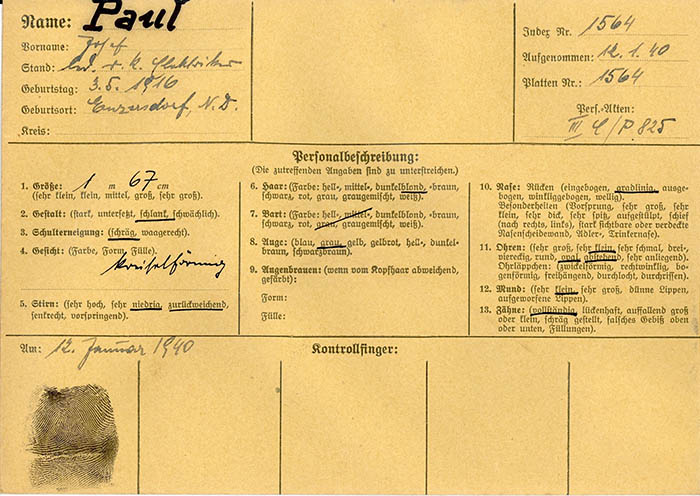 Name: Paul
Vorname: Josef
Stand: led. r. k. Elektriker
Geburtstag: 3.5.1916
Geburtsort: Enzersdorf, N. D.
Kreis:
Index Nr. 1564
Aufgenommen: 12.1.40
Platten Nr.: 1564
Pers.-Akten:
III C/P. 825
Personalbeschreibung:
(Die zutreffenden Angaben sind zu unterstreichen.)
1. Größe: 1 m 67 cm
(sehr klein, klein, mittel, groß, sehr groß).
2. Gestalt: (stark, untersetzt, schlank, schwächlich).
3. Schulterneigung: (schräg, waagerecht).
4. Gesicht: (Farbe, Form, Fülle).
kreiselförmig
5. Stirn: (sehr hoch, sehr niedrig, zurückweichend,
senkrecht, vorspringend).
6. Haar: (Farbe: hell-, mittel-, dunkelblond, -braun,
schwarz, rot, grau, graugemischt, weiß).
7. Bart: (Farbe: hell-, mittel-, dunkelblond, -braun,
schwarz, rot, grau, graugemischt, weiß).
8. Auge: (blau, grau, gelb, gelbrot, hell-, dunkel-
braun, schwarzbraun).
9. Augenbrauen: (wenn vom Kopfhaar abweichend,
gefärbt):
Form:
Fülle:
10. Nase: Rücken (eingebogen, gradlinig, ausge-
bogen, winkliggebogen, wellig).
Besonderheiten (Vorsprung, sehr groß, sehr
klein, sehr dick, sehr spitz, aufgestülpt, schief
(nach rechts, links), stark sichtbare oder verdeckte
Nasenscheidewand, Adler-, Trinkernase).
11. Ohren: (sehr groß, sehr klein, sehr schmal, drei-
viereckig, rund, oval, abstehend, sehr anliegend).
Ohrläppchen: (zwickelförmig, rechtwinklig, bo-
genförmig, freihängend, durchlocht, durchrissen).
12. Mund: (sehr klein, sehr groß, dünne Lippen,
aufgeworfene Lippen).
13. Zähne: (vollständig, lückenhaft, auffallend groß
oder klein, schräg gestellt, falsches Gebiß oben
oder unten, Füllungen).
Am: 12. Januar 1940
Kontrollfinger: